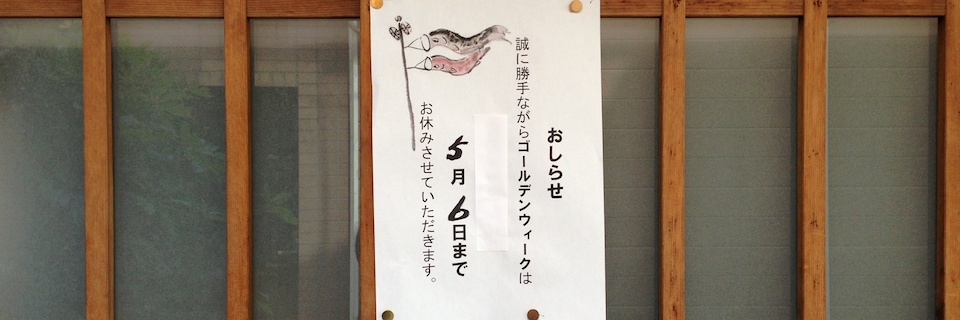 おしらせ
誠に勝手ながらゴールデンウィークは
5月6日まで
お休みさせていただきます。